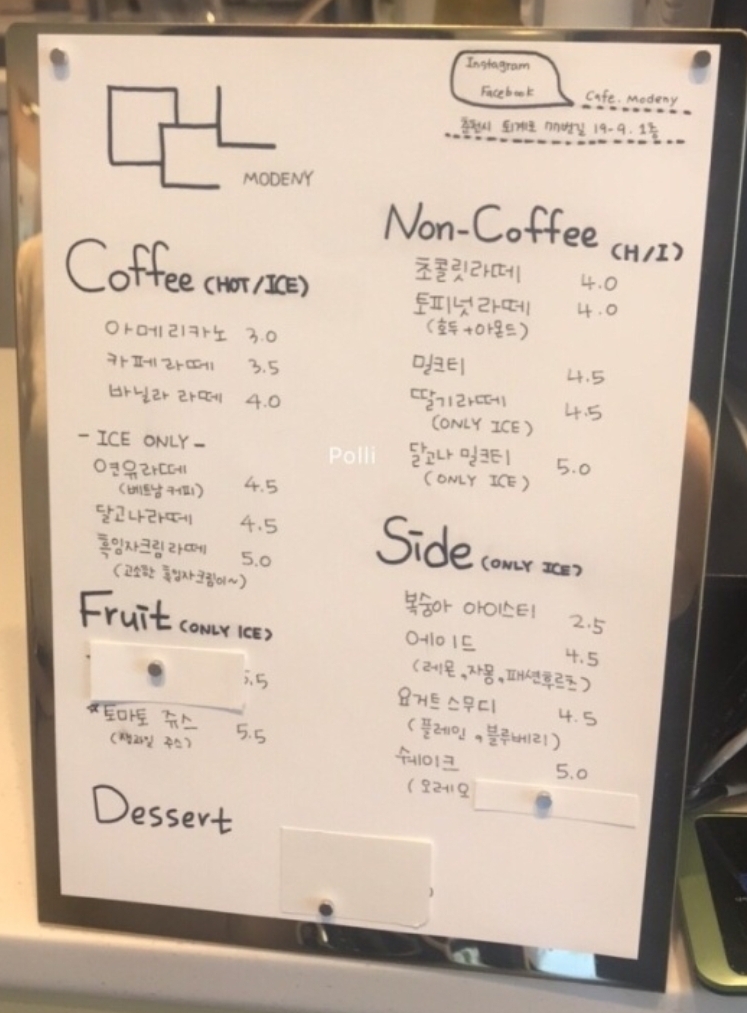 Instagram
Facebook
Cafe. Modeny
춘천시 퇴계로 77번길 19-9. 1층
MODENY
Coffee (HOT/ICE)
아메리카노 3.0
카페라떼 3.5
바닐라 라떼 4.0
- ICE ONLY -
연유라떼
(베트남 커피) 4.5
달고나라떼 4.5
흑임자크림라떼 5.0
(고소한 흑임자크림이~)
Fruit (ONLY ICE)
.5
*토마토 쥬스 5.5
(생과일 주스)
Dessert
Non-Coffee (H/I)
초콜릿라떼 4.0
토피넛라떼 4.0
(호두+아몬드)
밀크티 4.5
딸기라떼 4.5
(ONLY ICE)
달고나 밀크티 5.0
(ONLY ICE)
Side (ONLY ICE)
복숭아 아이스티 2.5
에이드 4.5
(레몬,자몽,패션후르츠)
요거트스무디 4.5
(플레인,블루베리)
쉐이크 5.0
(오레오
Polli